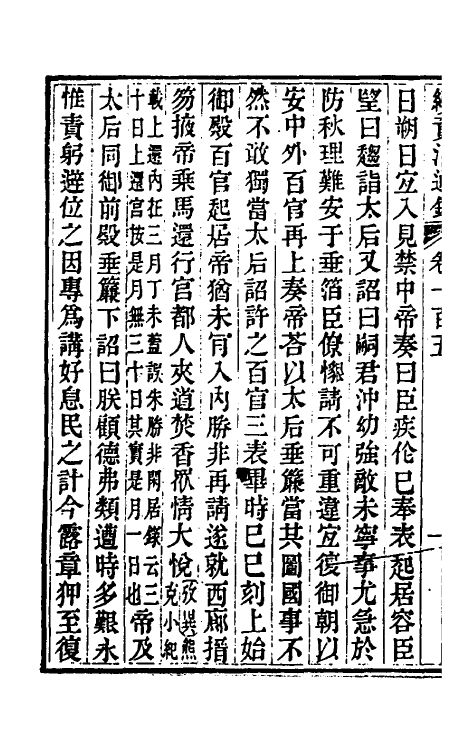 續資治通鑑 卷一百五 一
日朔日宜入見禁中帝奏曰臣疾倫已奉表起居容臣
朢日趨詣太后又詔曰嗣君沖幼強敵未寧事尤急於
防秋理難安于垂箔臣僚懇請不可重違宜復御朝以
安中外百官再上奏帝荅以太后垂簾當其圖國事不
然不敢獨當太后詔許之百官三表畢時巳已刻上始
御殿百官起居帝猶未肎入內勝非再請遂就西廊搢
笏掖帝乘馬還行宮都人夾道焚香歡情大悅攷異熊克小紀
載上還內在三月丁未蓋誤朱勝非閑居錄云三
十日上還宮按是月無三十日其實是月一日也帝及
太后同御前殿垂簾下詔曰朕顧德弗類遭時多艱永
惟責躬避位之因專爲講好息民之計今露章狎至復